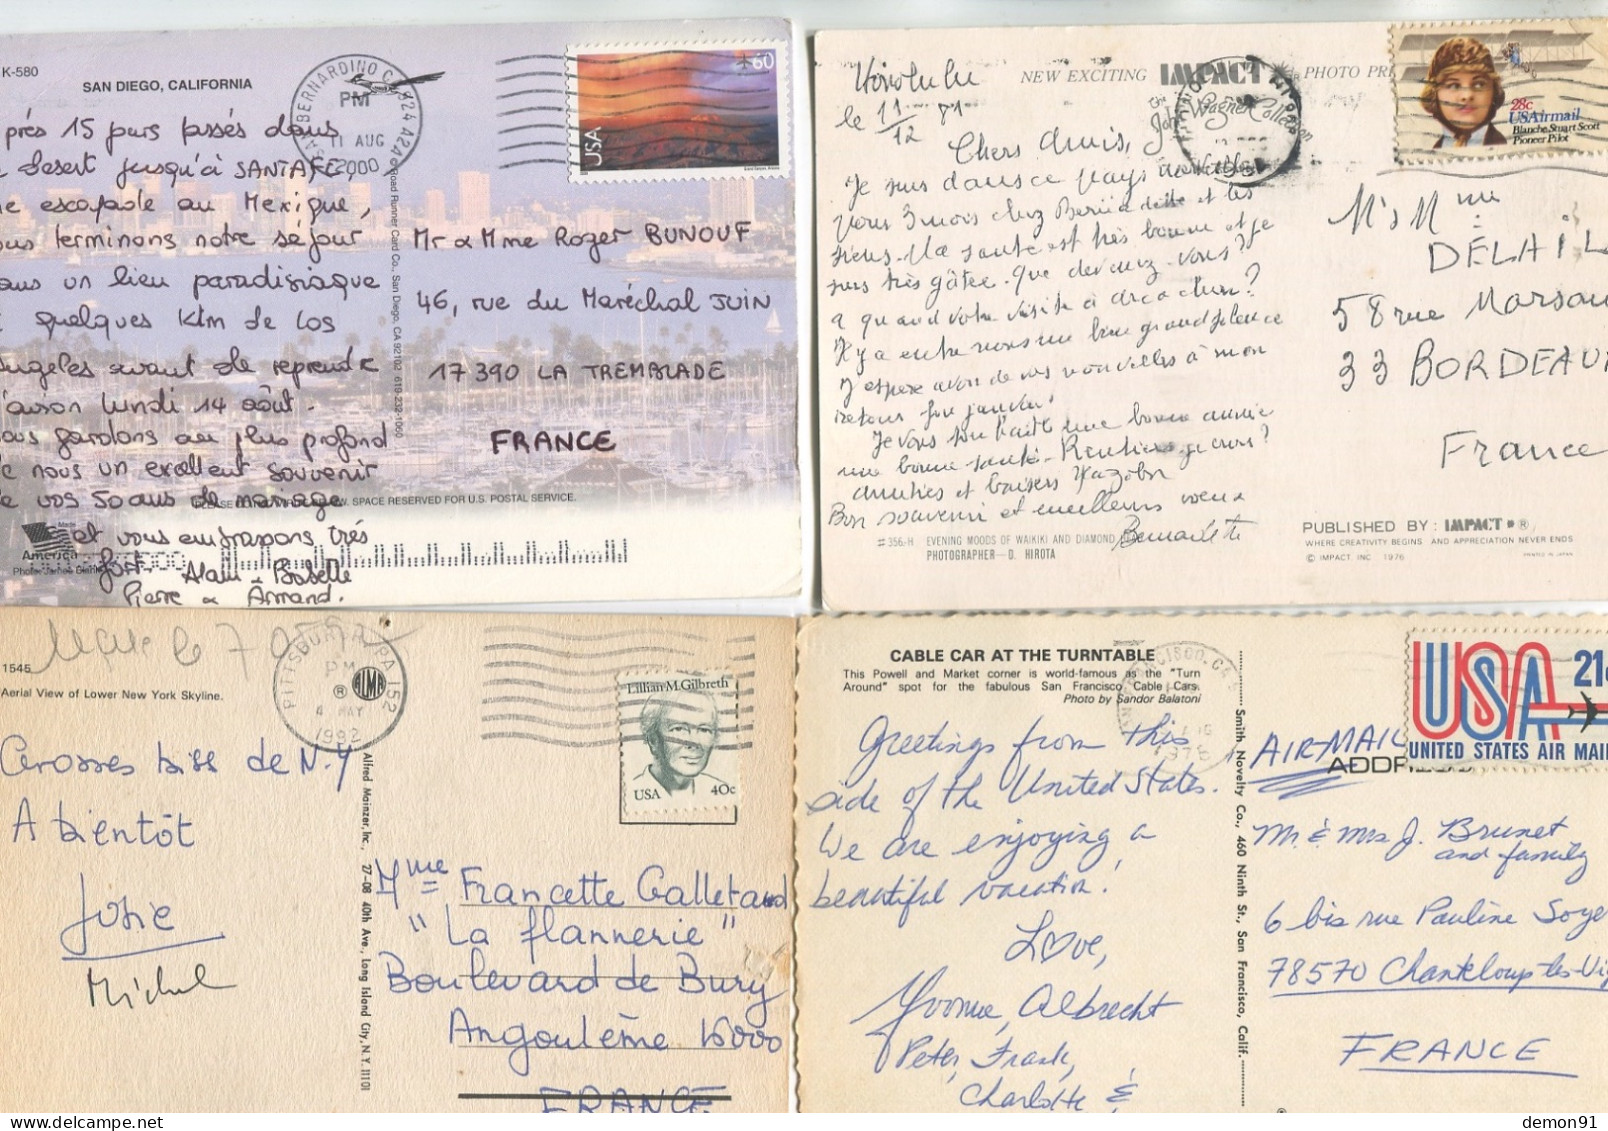 K-580
SAN DIEGO, CALIFORNIA
SAN BERNARDINO CA 924 A2A
PM
11 AUG
2000
60
USA
près 15 jours passés dans
desert jusqu'à SANTA FE,
escapade au Mexique,
terminons notre séjour
un lieu paradisiaque
quelques Ktm de Los
Angeles avant de reprendre
lundi 14 août.
gardons au plus profond
nous un excellent souvenir
vos 50 ans de mariage
et vous embrassons très
fort
Alain - Babette
Pierre & Armand.
Road Runner Card Co., San Diego, CA 92102 619-232-1060
Mr & Mme Roger BUNOUF
46, rue du Maréchal JUIN
17390 LA TREMBLADE
FRANCE
SPACE RESERVED FOR U.S. POSTAL SERVICE.
Made
America
Honolulu
le 11/12 81
NEW EXCITING IMPACT PHOTO PRI
The John Wagner Collection
28c
USAirmail
Blanche Stuart Scott
Pioneer Pilot
Chers Amis,
Je suis dans ce pays
3 mois chez Bernadette et les
siens. Ma santé est très bonne et je
suis très gâtée. Que devenez-vous?
a quand votre visite à Arcachon?
Il y a entre nous un bien grand silence
J'espère avoir de vos nouvelles à mon
retour fin janvier!
Je vous souhaite une bonne année
une bonne santé. Rentiers je crois?
Amitiés et baisers
Bon souvenir et meilleurs voeux
Bernadette
M's Mme
DELAIL
58 rue
33 BORDEAU
France
#356-H EVENING MOODS OF WAIKIKI AND DIAMOND
PHOTOGRAPHER— D. HIROTA
PUBLISHED BY: IMPACT ®,
WHERE CREATIVITY BEGINS AND APPRECIATION NEVER ENDS
© IMPACT. INC 1976
PRINTED IN JAPAN
1545
Aerial View of Lower New York Skyline.
PITTSBURGH, PA 152
PM
4 MAY
1992
® ALMA
Lillian M. Gilbreth
USA 40c
Grosses bises de N.Y
A bientôt
Josie
Michel
Alfred Mainzer, Inc., 27-08 40th Ave., Long Island City, N.Y. 11101
Mme Francette Galletaud
"La flannerie"
Boulevard de Bury
Angoulême 16000
FRANCE
CABLE CAR AT THE TURNTABLE
This Powell and Market corner is world-famous as the "Turn
Around" spot for the fabulous San Francisco Cable Cars.
Photo by Sandor Balatoni
USA 21c
UNITED STATES AIR MAIL
AIR MAIL
Greetings from this
side of the United States.
We are enjoying a
beautiful vacation!
Love,
Yvonne, Albrecht
Peter, Frank,
Charlotte &
Smith Novelty Co., 460 Ninth St., San Francisco, Calif.
M. & Mrs J. Brunet
and family
6 bis rue Pauline Soye
78570 Chanteloup-les-Vig
FRANCE
demon91